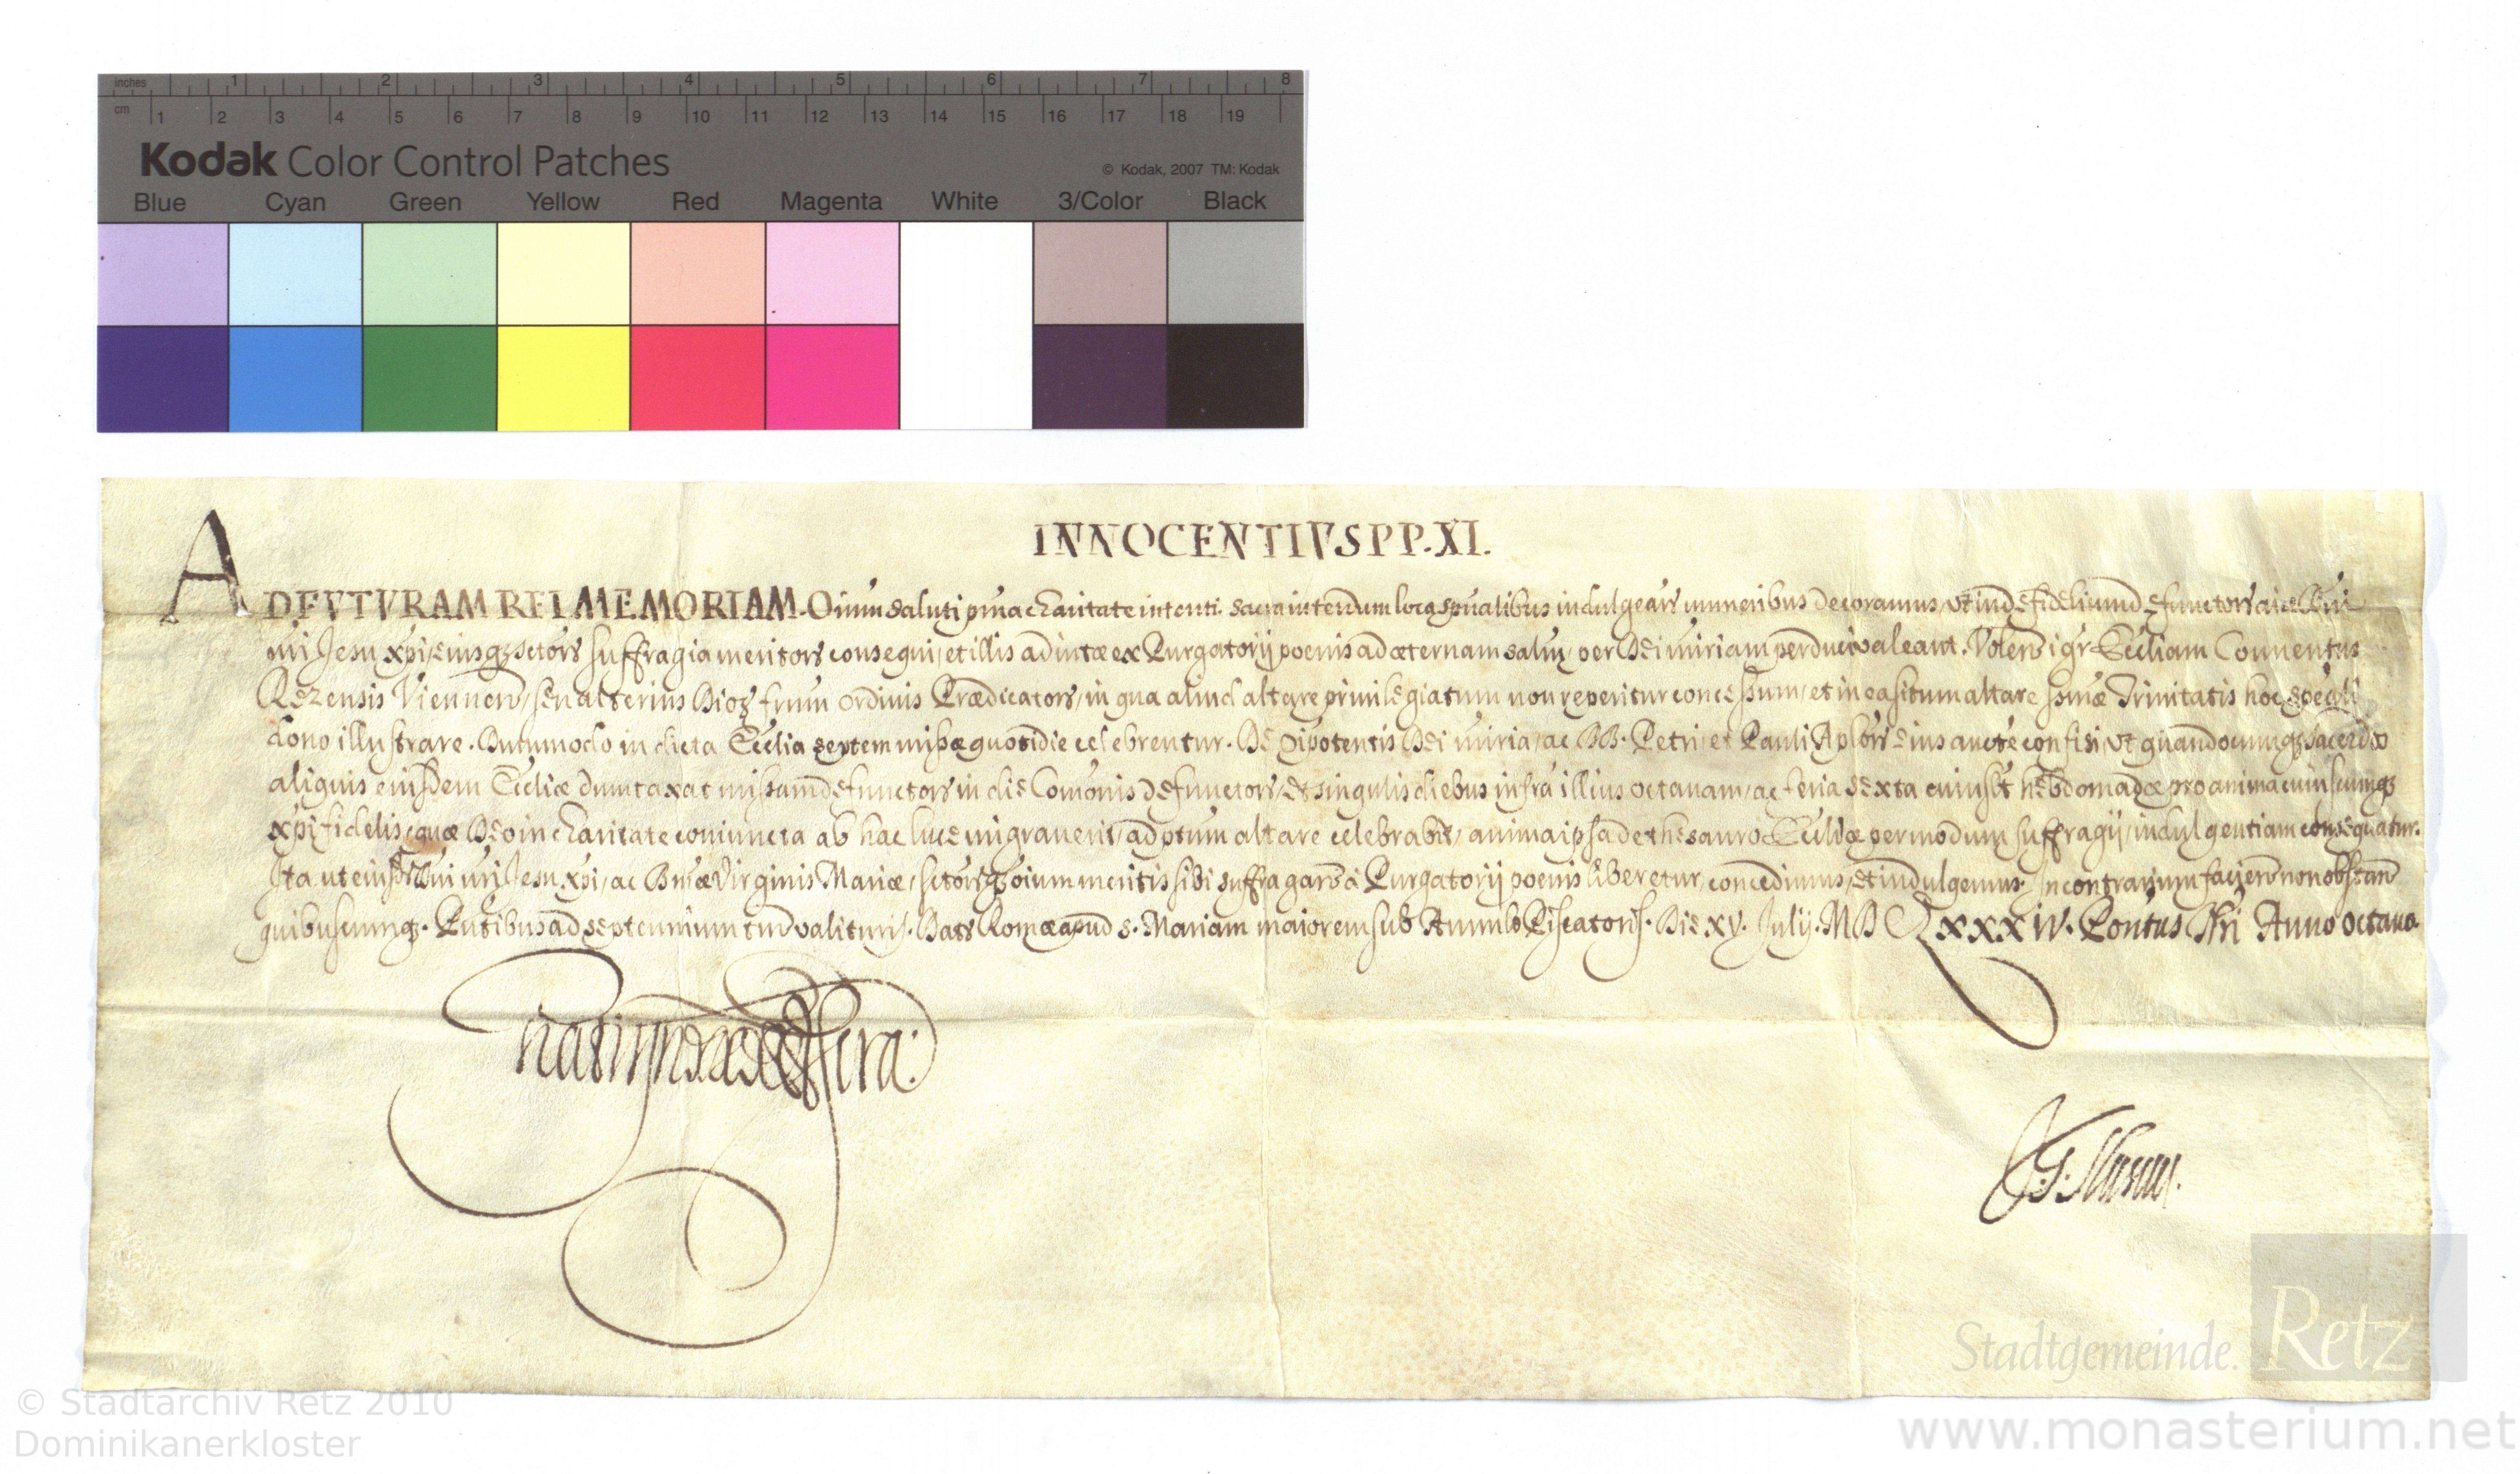 inches 1 2 3 4 5 6 7 8
cm 1 2 3 4 5 6 7 8 9 10 11 12 13 14 15 16 17 18 19
Kodak Color Control Patches © Kodak, 2007 TM: Kodak
Blue Cyan Green Yellow Red Magenta White 3/Color Black
INNOCENTIVS PP. XI.
AD FVTVRAM REI MEMORIAM. Oium saluti pma charitate intenti sacra interdum loca spualibus indulgears muneribus decoramus, ut inde fidelium defunctors aie Dni
nri Jesu xpi, eiusq3 sctors suffragia meritors consequi, et illis adiutæ ex Purgatorij poenis ad æternam salm per Dei miriam perduci valeant. Volen igr Eccliam Conuentus
Rezensis Viennen, seu alterius Dioq frum ordinis Prædicators, in qua aliud altare priuilegiatum non reperitur concessum, et in ea situm altare ssmæ Trinitatis hoc speciali
dono illustrare. Dummodo in dicta Ecclia septem missæ quotidie celebrentur. De oipotentis Dei miria, ac BB. Petri et Pauli Aplors eius aucte confisi, ut quandocumq3 sacerdo
aliquis eiusdem Eccliæ dumtaxat missam defunctors in die Comonis defunctors, et singulis diebus infra illius octauam, ac feria sexta cuiuslt hebdomadæ pro anima cuiuscumq3
xpifidelis, quæ Deo in charitate coniuncta ab hac luce migrauerit, ad ptum altare celebrabit, anima ipsa de thesauro Eccliæ per modum suffragij, indulgentiam consequatur.
Ita ut eiusd Dni nri Jesu xpi, ac Bmæ Virginis Mariæ, sctorsq3 oium meritis sibi suffragan à Purgatorij poenis liberetur, concedimus, et indulgemus. In contrarium facien non obstan
quibuscumq3. Pntibus ad septennium tm valituris. Dat Romæ apud S. Mariam maiorem sub Annulo Piscatoris. Die xv. Julij. MDCLxxxiv. Pontus Nri Anno octauo
J. G. Slusius.
Stadtgemeinde Retz
© Stadtarchiv Retz 2010
Dominikanerkloster
www.monasterium.net